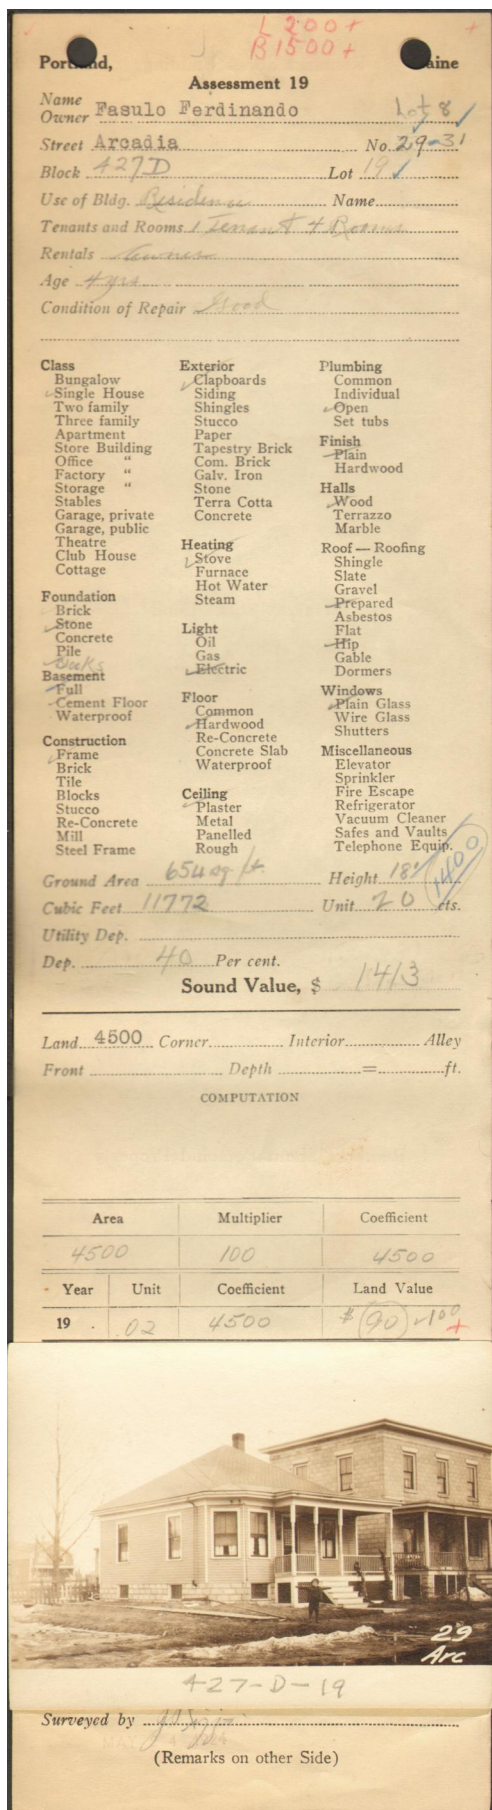 L 200+
B 1500+
+
Portland, Maine
Assessment 19
Name
Owner Fasulo Ferdinando Lot 8
Street Arcadia No. 29-31
Block 427D Lot 19
Use of Bldg. Residence Name
Tenants and Rooms 1 Tenant 4 Rooms
Rentals Owner
Age 4 yrs
Condition of Repair Good
Class
Bungalow
Single House
Two family
Three family
Apartment
Store Building
Office "
Factory "
Storage "
Stables
Garage, private
Garage, public
Theatre
Club House
Cottage
Foundation
Brick
Stone
Concrete
Pile
Basement
Full
Cement Floor
Waterproof
Construction
Frame
Brick
Tile
Blocks
Stucco
Re-Concrete
Mill
Steel Frame
Exterior
Clapboards
Siding
Shingles
Stucco
Paper
Tapestry Brick
Com. Brick
Galv. Iron
Stone
Terra Cotta
Concrete
Heating
Stove
Furnace
Hot Water
Steam
Light
Oil
Gas
Electric
Floor
Common
Hardwood
Re-Concrete
Concrete Slab
Waterproof
Ceiling
Plaster
Metal
Panelled
Rough
Plumbing
Common
Individual
Open
Set tubs
Finish
Plain
Hardwood
Halls
Wood
Terrazzo
Marble
Roof — Roofing
Shingle
Slate
Gravel
Prepared
Asbestos
Flat
Hip
Gable
Dormers
Windows
Plain Glass
Wire Glass
Shutters
Miscellaneous
Elevator
Sprinkler
Fire Escape
Refrigerator
Vacuum Cleaner
Safes and Vaults
Telephone Equip.
1400
Ground Area 654 sq ft. Height 18'
Cubic Feet 11772 Unit 20 cts.
Utility Dep.
Dep. 40 Per cent.
Sound Value, $ 1413
Land 4500 Corner Interior Alley
Front Depth = ft.
COMPUTATION
Area Multiplier Coefficient
4500 100 4500
Year Unit Coefficient Land Value
19 .02 4500 $ 90 100 +
29
Arc
427-D-19
Surveyed by
(Remarks on other Side)